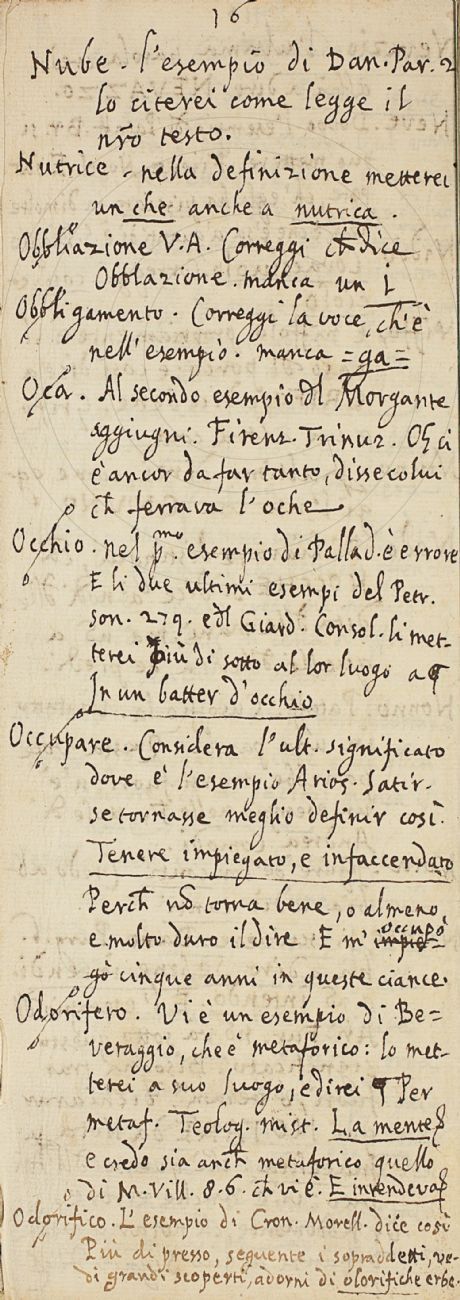 16
Nube. l'esempio di Dan. Par. 2
lo citerei come legge il
nr̃o testo.
Nutrice. nella definizione metterei
un che anche a nutrica.
Obbliazione V.A. Correggi ch̃ dice
Obblazione. manca un i
Obbligamento. Correggi la voce, ch'è
nell'esempio. manca =ga=
Oca. Al secondo esempio dl Morgante
aggiugni. Firenz. Trinuz.
è ancor da far tanto, disse colui
ch̃ ferrava l'oche
Occhio. nel p.mo esempio di Pallad. è errore
E li due ultimi esempi del Petr.
son. 279. e dl Giard. Consol. li met-
terei più di sotto al lor luogo a ¶
In un batter d'occhio
Occupare. Considera l'ult. significato
dove è l'esempio Arios. Satir.
se tornasse meglio definir così.
Tenere impiegato, e infaccendato
Perch̃ nõ torna bene, o almeno,
e molto duro il dire E m' occupò
gò cinque anni in queste ciance.
Odorifero. Vi è un esempio di Be=
veraggio, che è metaforico: lo met-
terei a suo luogo, e direi ¶ Per
metaf. Teolog. mist. La mente
e credo sia anch̃ metaforico quello
di M. Vill. 8. 6. ch̃ vi è. E intendeva
Odorifico. L'esempio di Cron. Morell. dice così
Più di presso, seguente i sopraddetti, ve-
di grandi scoperti, adorni di olorifiche erbe.